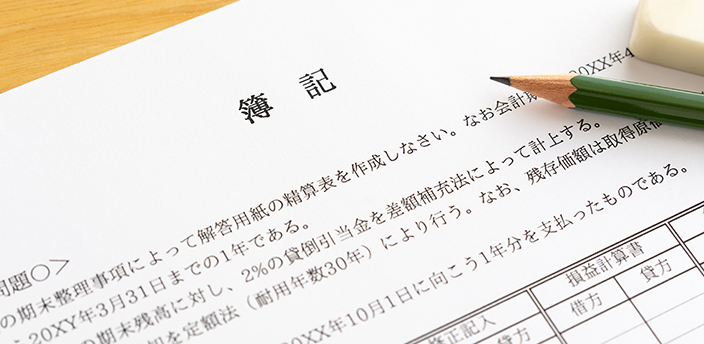 簿 記
問題○>
の期末整理事項によって解答用紙の精算表を作成しなさい。なお会計期 20XX年4
20XY年3月31日までの1年である。
の期末残高に対し、2%の貸倒引当金を差額補充法によって計上する。
を定額法(耐用年数30年)により行う。なお、残存価額は取得原価
20XX年10月1日に向こう1年分を支払ったものである。
修正記入 損益計算書
貸方 借方 貸方